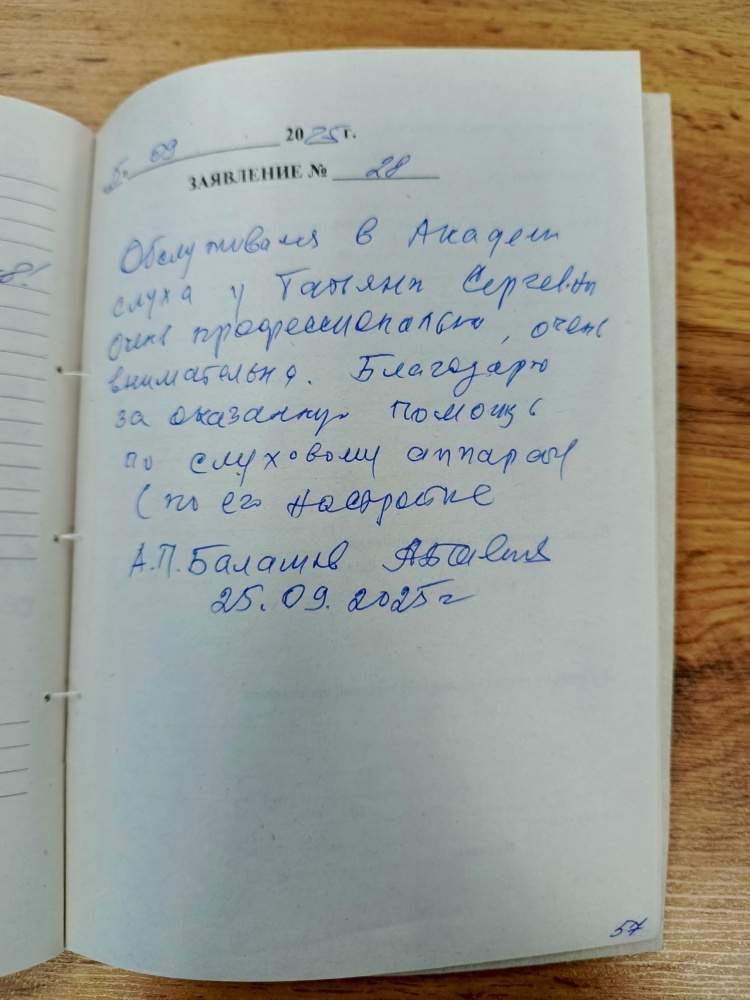 25. 09 2025 г.
ЗАЯВЛЕНИЕ № 28
Обслуживался в Академии
слуха у Татьяны Сергевны
очень профессионально, очень
внимательно. Благодарю
за оказанную помощь
по слуховому аппарату
(по его настройке
А.П. Балашов
25.09.2025 г
57
8!